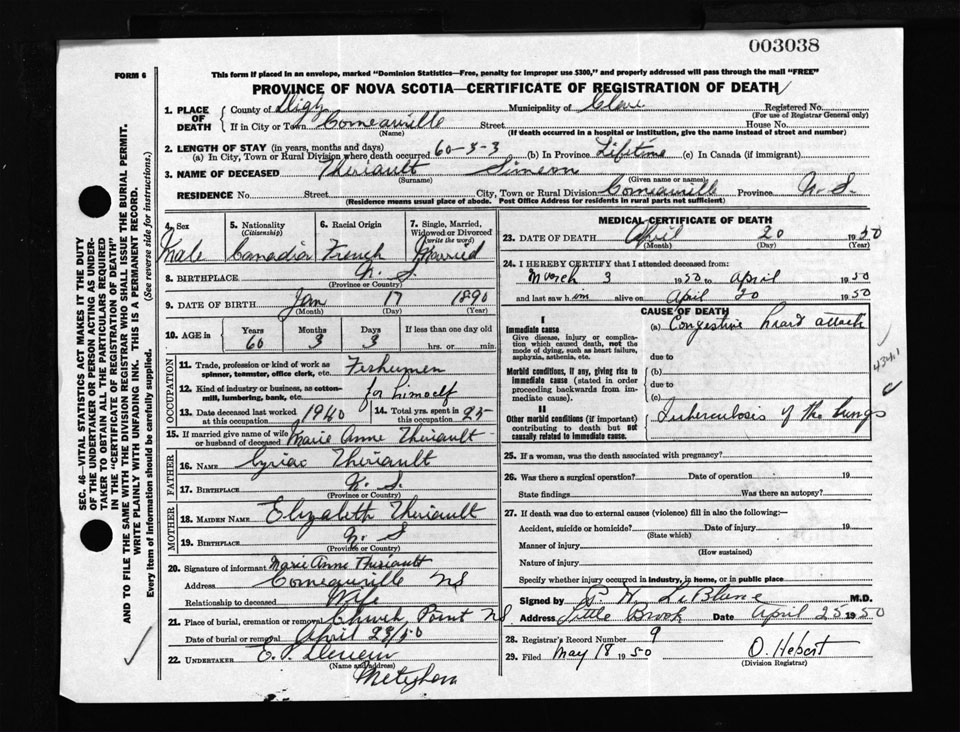 003038
FORM 6
This form if placed in an envelope, marked "Dominion Statistics—Free, penalty for improper use $300," and properly addressed will pass through the mail "FREE"
PROVINCE OF NOVA SCOTIA—CERTIFICATE OF REGISTRATION OF DEATH
1. PLACE OF DEATH County of Digby Municipality of Clare Registered No.
(For use of Registrar General only)
If in City or Town Comeauville Street House No.
(Name) (If death occurred in a hospital or institution, give the name instead of street and number)
2. LENGTH OF STAY (in years, months and days)
(a) In City, Town or Rural Division where death occurred 60-3-3 (b) In Province Lifetime (c) In Canada (if immigrant)
3. NAME OF DECEASED Theriault Simeon
(Surname) (Given name or names)
RESIDENCE No. Street City, Town or Rural Division Comeauville Province N.S.
(Residence means usual place of abode. Post Office Address for residents in rural parts not sufficient)
4. Sex 5. Nationality (Citizenship) 6. Racial Origin 7. Single, Married, Widowed or Divorced (write the word)
Male Canadian French Married
8. BIRTHPLACE N. S.
(Province or Country)
9. DATE OF BIRTH Jan 17 1890
(Month) (Day) (Year)
10. AGE in Years Months Days If less than one day old
60 3 3 hrs. or min.
OCCUPATION
11. Trade, profession or kind of work as spinner, teamster, office clerk, etc. Fishermen
12. Kind of industry or business, as cotton-mill, lumbering, bank, etc. for himself
13. Date deceased last worked at this occupation 1940 14. Total yrs. spent in this occupation 25
15. If married give name of wife or husband of deceased Marie Anne Theriault
FATHER
16. NAME Cyriac Theriault
17. BIRTHPLACE N. S.
(Province or Country)
MOTHER
18. MAIDEN NAME Elizabeth Theriault
19. BIRTHPLACE N. S
(Province or Country)
20. Signature of informant Marie Anne Theriault
Address Comeauville NS
Relationship to deceased Wife
21. Place of burial, cremation or removal Church Point NS
Date of burial or removal April 23/50
22. UNDERTAKER E. P.
(Name and address)
MEDICAL CERTIFICATE OF DEATH
23. DATE OF DEATH April 20 1950
(Month) (Day) (Year)
24. I HEREBY CERTIFY that I attended deceased from:
March 3 1950 to April 1950
and last saw him alive on April 20 1950
CAUSE OF DEATH
I
Immediate cause
Give disease, injury or complication which caused death, not the mode of dying, such as heart failure, asphyxia, asthenia, etc.
(a) Congestive heart attack
due to
Morbid conditions, if any, giving rise to immediate cause (stated in order proceeding backwards from immediate cause).
(b)
due to
(c)
II
Other morbid conditions (if important) contributing to death but not causally related to immediate cause.
Tuberculosis of the lungs
25. If a woman, was the death associated with pregnancy?
26. Was there a surgical operation? Date of operation 19
State findings Was there an autopsy?
27. If death was due to external causes (violence) fill in also the following:—
Accident, suicide or homicide? Date of injury 19
(State which)
Manner of injury
(How sustained)
Nature of injury
Specify whether injury occurred in industry, in home, or in public place
Signed by P. H. LeBlanc M.D.
Address Little Brook Date April 25 1950
28. Registrar's Record Number 9
29. Filed May 18 1950 O. Hebert
(Division Registrar)
SEC. 46—VITAL STATISTICS ACT MAKES IT THE DUTY
OF THE UNDERTAKER OR PERSON ACTING AS UNDER-
TAKER TO OBTAIN ALL THE PARTICULARS REQUIRED
IN THE "CERTIFICATE OF REGISTRATION OF DEATH"
AND TO FILE THE SAME WITH THE DIVISION REGISTRAR WHO SHALL ISSUE THE BURIAL PERMIT.
WRITE PLAINLY WITH UNFADING INK. THIS IS A PERMANENT RECORD.
Every item of Information should be carefully supplied. (See reverse side for instructions.)